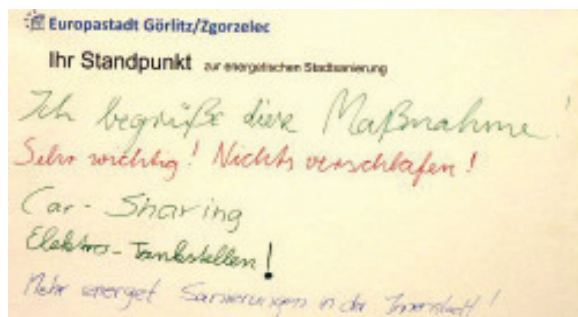 Europastadt Görlitz/Zgorzelec
Ihr Standpunkt zur energetischen Stadtsanierung
Ich begrüße diese Maßnahme!
Sehr wichtig! Nichts verschlafen!
Car-Sharing
Elektro-Tankstellen!
Mehr energet Sanierungen in der Innenstadt!